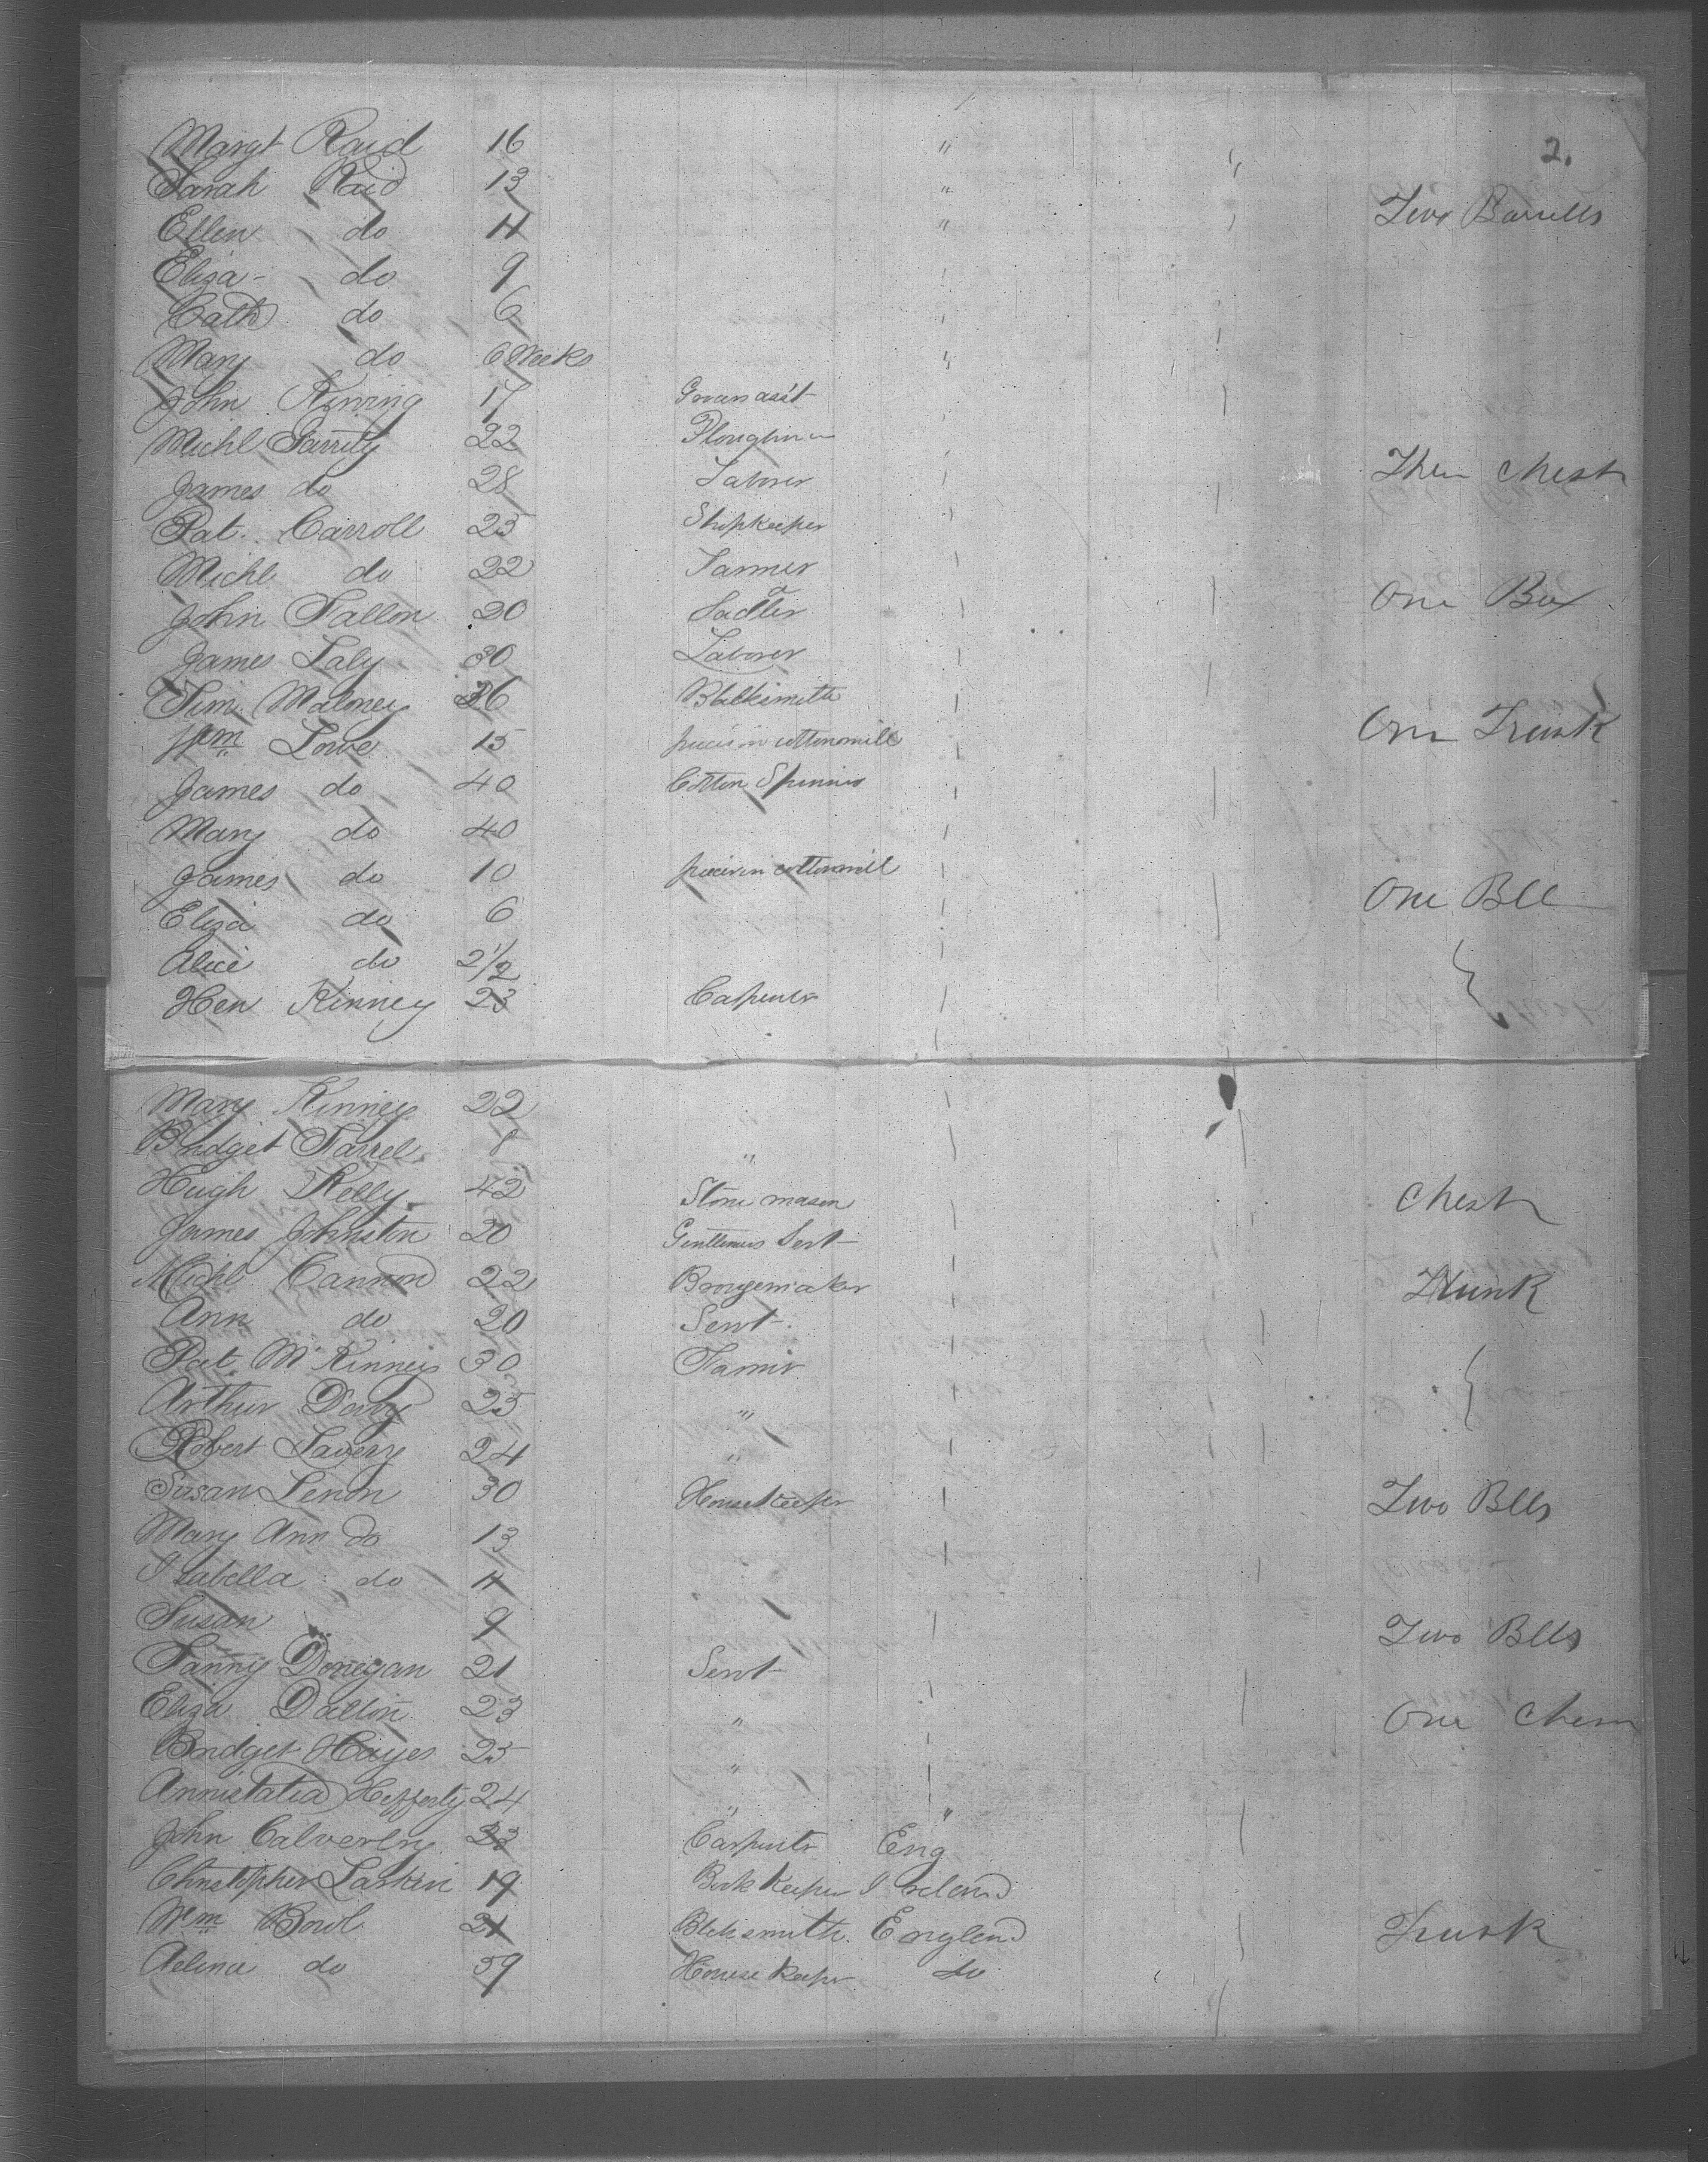 2.
Margt Raid 16 " "
Sarah Raid 13 " Two Barrells
Ellen do 11 "
Eliza do 9
Cath do 6
Mary do 6 Weeks "
John Kirving 17 Grocers ass't
Michl Garrity 22 Ploughman
James do 28 Laborer Chest
Pat. Carroll 25 Shopkeeper
Michl do 22 Farmer
John Fallon 20 Sadler One Box
James Laly 30 Laborer
Tim Maloney 36 Blksmith
Wm Lowe 15 piecer in cottonmill One Trunk
James do 40 Cotton Spinner
Mary do 40
James do 10 piecer in cottonmill
Eliza do 6 One Bll
Alice do 2 1/2
Hen Kinney 23 Carpenter
Mary Kinney 22
Bridget Farrel 8 "
Hugh Kelly 42 Stone mason Chest
James Johnston 20 Gentlemens Sert
Michl Cannon 22 Broguemaker Trunk
Ann do 20 Servt.
Pat. McKinney 30 Farmer
Arthur Davy 25 "
Robert Lavery 24 "
Susan Lenon 30 Housekeeper Two Blls
Mary Ann do 13
Isabella do 11
Susan 9 Two Blls
Fanny Donegan 21 Servt
Eliza Dalton 23 " One Chest
Bridget Hayes 25 "
Annistatia Hefferty 24 " "
John Calverly 33 Carpentr Eng
Christopher Larkin 19 Book Keeper Ireland
Wm Bowl 21 Blcksmith. England Trunk
Aelina do 59 House keeper do